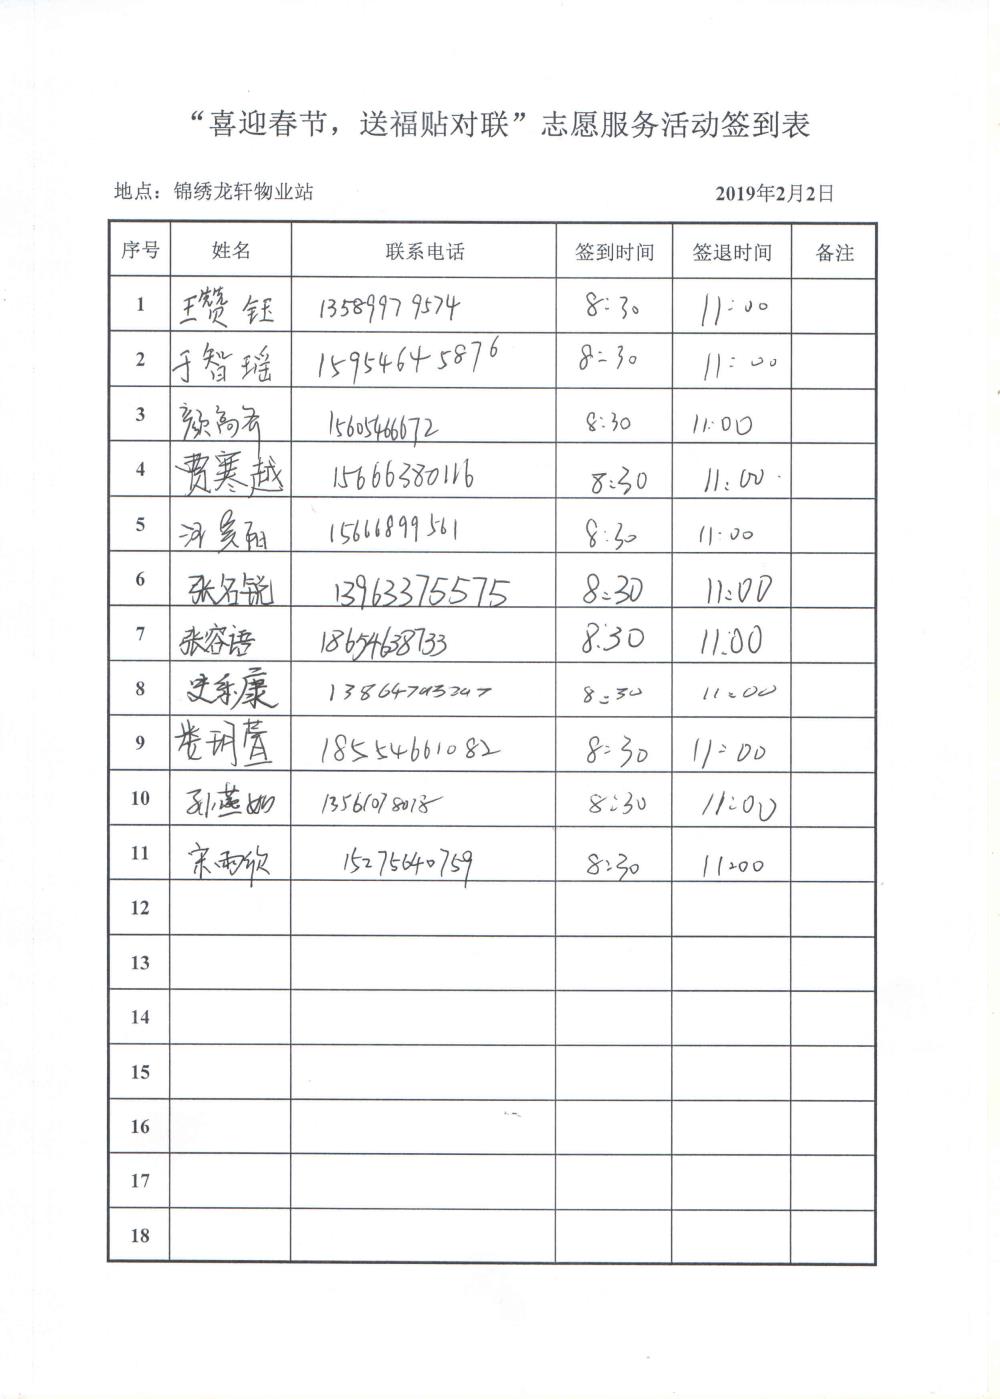 “喜迎春节，送福贴对联”志愿服务活动签到表
地点：锦绣龙轩物业站 2019年2月2日
序号 姓名 联系电话 签到时间 签退时间 备注
1 王赞钰 13589979574 8:30 11:00
2 于智瑶 15954645876 8:30 11:00
3 颜高 15605466672 8:30 11:00
4 贾寒越 15666380116 8:30 11:00
5 15666899561 8:30 11:00
6 张名锐 13963375575 8:30 11:00
7 张容语 18654638733 8:30 11:00
8 史乐康 8:30 11:00
9 娄玥萱 18554661082 8:30 11:00
10 孙燕如 13561078018 8:30 11:00
11 宋雨欣 15275640759 8:30 11:00
12
13
14
15
16
17
18